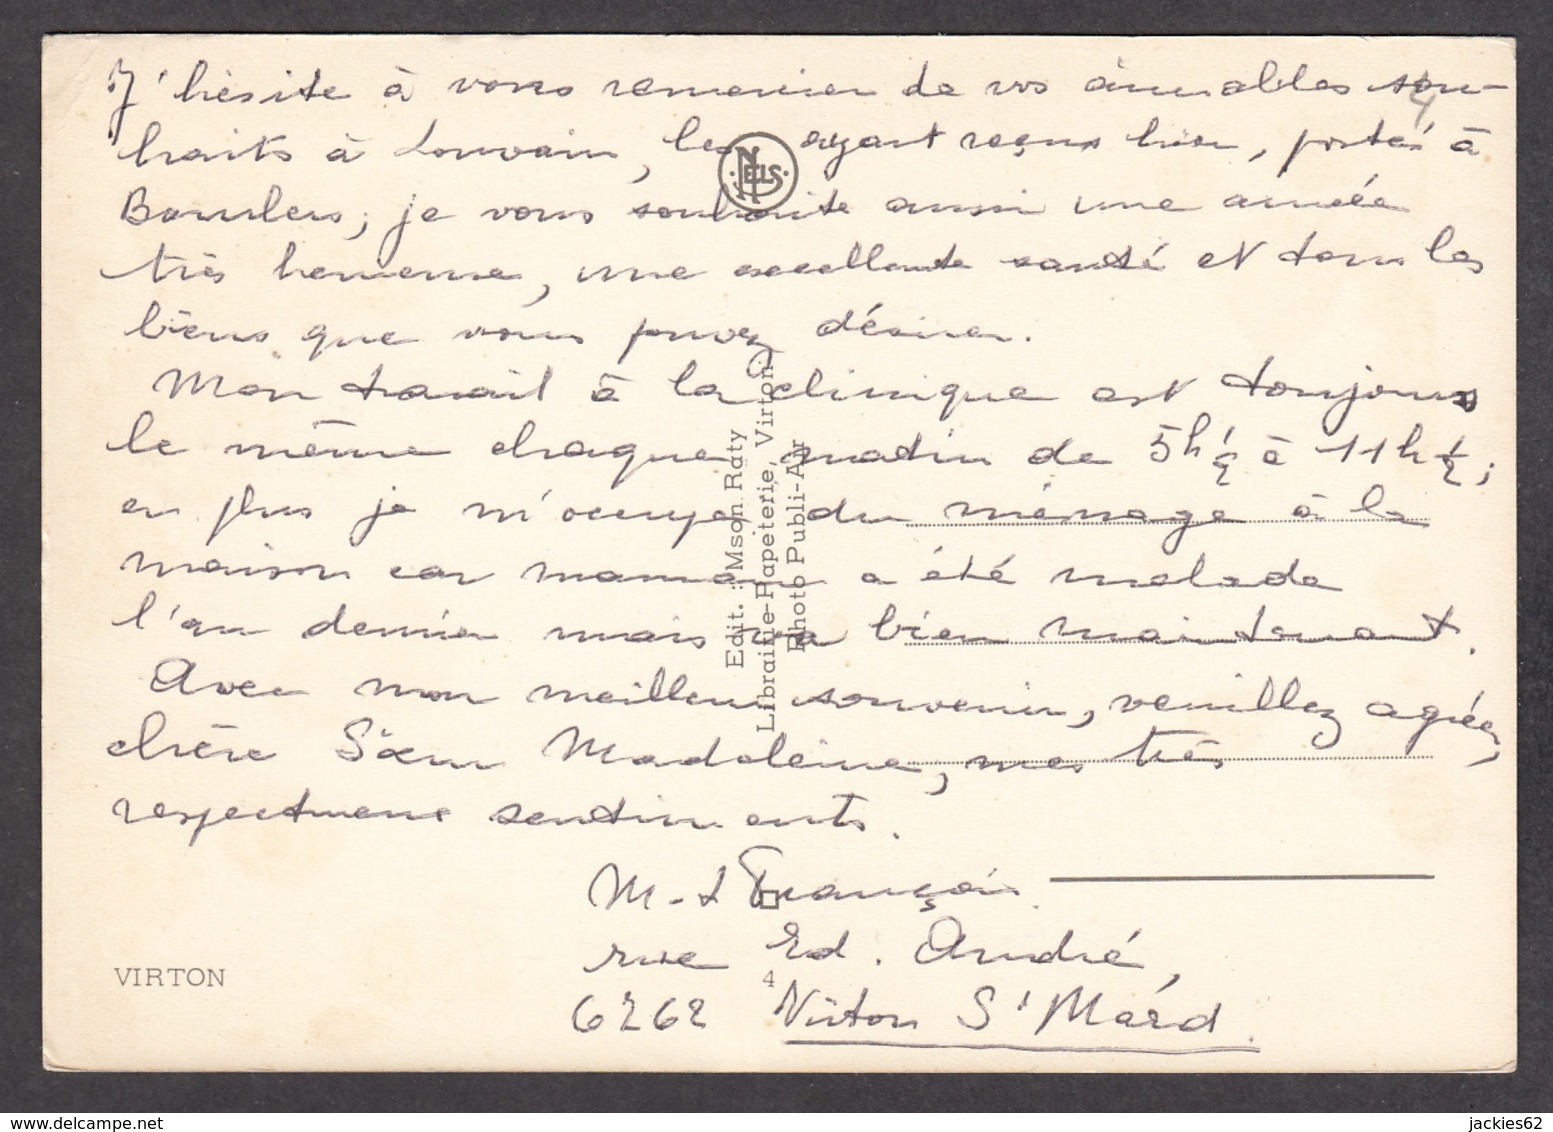 J'hésite à vous remercier de vos aimables sou-
haits à Louvain, les ayant reçus hier, postés à
je vous souhaite aussi une année
très heureuse, une excellente santé et tous les
biens que vous pouvez désirer.
Mon travail à la clinique est toujours
le même chaque matin de 5h 1/2 à 11h 1/2;
en plus je m'occupe du ménage à la
maison car maman a été malade
l'an dernier mais va bien maintenant.
Avec mon meilleur souvenir, veuillez agréer,
chère Sœur Madeleine, mes très
respectueux sentiments.
M-L François
rue Ed. André,
6762 Virton St Mard.
VIRTON
4
NELS
Edit. : Mson Raty
Librairie-Papeterie, Virton.
Photo Publi-Air
4
jackies62